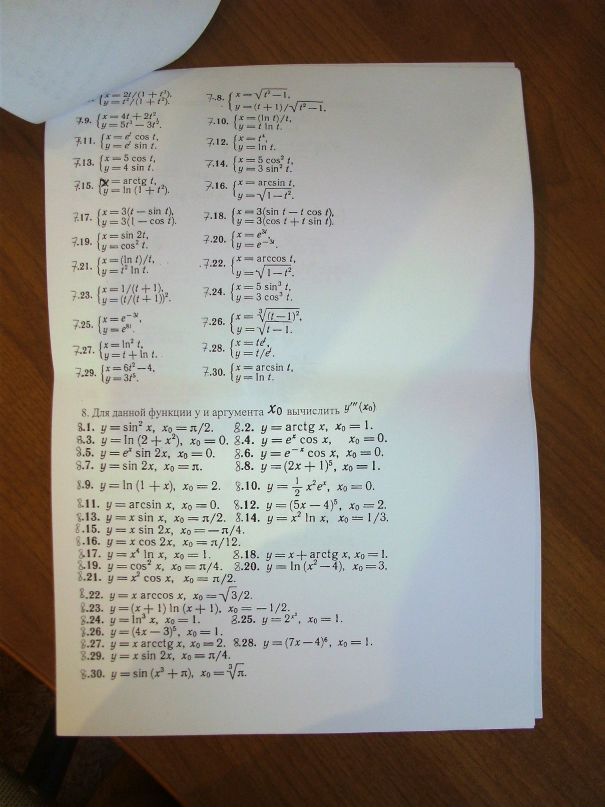 {x = 2t/(1 + t³), y = t²/(1 + t²). 7.8. {x = √(t² − 1), y = (t + 1)/√(t² − 1).
7.9. {x = 4t + 2t², y = 5t³ − 3t². 7.10. {x = (ln t)/t, y = t ln t.
7.11. {x = eᵗ cos t, y = eᵗ sin t. 7.12. {x = t⁴, y = ln t.
7.13. {x = 5 cos t, y = 4 sin t. 7.14. {x = 5 cos² t, y = 3 sin² t.
7.15. {x = arctg t, y = ln (1 + t²). 7.16. {x = arcsin t, y = √(1 − t²).
7.17. {x = 3(t − sin t), y = 3(1 − cos t). 7.18. {x = 3(sin t − t cos t), y = 3(cos t + t sin t).
7.19. {x = sin 2t, y = cos² t. 7.20. {x = e³ᵗ, y = e⁻³ᵗ.
7.21. {x = (ln t)/t, y = t² ln t. 7.22. {x = arccos t, y = √(1 − t²).
7.23. {x = 1/(t + 1), y = (t/(t + 1))². 7.24. {x = 5 sin³ t, y = 3 cos³ t.
7.25. {x = e⁻³ᵗ, y = e⁸ᵗ. 7.26. {x = ∛(t − 1)², y = √(t − 1).
7.27. {x = ln² t, y = t + ln t. 7.28. {x = teᵗ, y = t/eᵗ.
7.29. {x = 6t² − 4, y = 3t⁵. 7.30. {x = arcsin t, y = ln t.
8. Для данной функции y и аргумента x₀ вычислить y‴(x₀)
8.1. y = sin² x, x₀ = π/2. 8.2. y = arctg x, x₀ = 1.
8.3. y = ln (2 + x²), x₀ = 0. 8.4. y = eˣ cos x, x₀ = 0.
8.5. y = eˣ sin 2x, x₀ = 0. 8.6. y = e⁻ˣ cos x, x₀ = 0.
8.7. y = sin 2x, x₀ = π. 8.8. y = (2x + 1)⁵, x₀ = 1.
8.9. y = ln (1 + x), x₀ = 2. 8.10. y = 1/2 x²eˣ, x₀ = 0.
8.11. y = arcsin x, x₀ = 0. 8.12. y = (5x − 4)⁵, x₀ = 2.
8.13. y = x sin x, x₀ = π/2. 8.14. y = x² ln x, x₀ = 1/3.
8.15. y = x sin 2x, x₀ = −π/4.
8.16. y = x cos 2x, x₀ = π/12.
8.17. y = x⁴ ln x, x₀ = 1. 8.18. y = x + arctg x, x₀ = 1.
8.19. y = cos² x, x₀ = π/4. 8.20. y = ln (x² − 4), x₀ = 3.
8.21. y = x² cos x, x₀ = π/2.
8.22. y = x arccos x, x₀ = √3/2.
8.23. y = (x + 1) ln (x + 1), x₀ = −1/2.
8.24. y = ln³ x, x₀ = 1. 8.25. y = 2^(x²), x₀ = 1.
8.26. y = (4x − 3)⁵, x₀ = 1.
8.27. y = x arcctg x, x₀ = 2. 8.28. y = (7x − 4)⁶, x₀ = 1.
8.29. y = x sin 2x, x₀ = π/4.
8.30. y = sin (x³ + π), x₀ = ∛π.